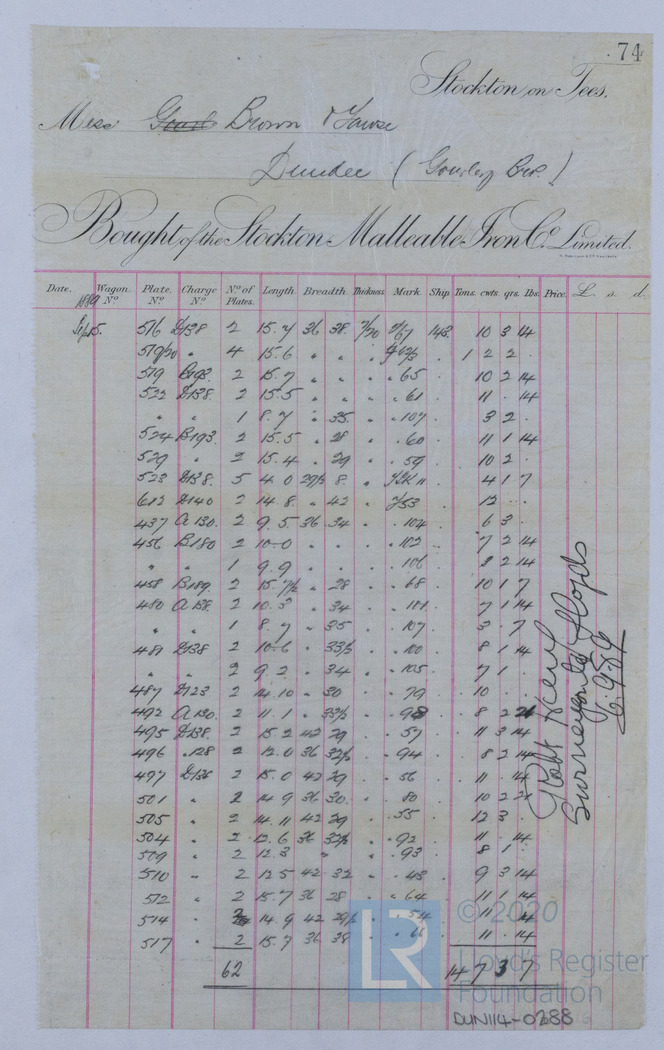 74
Stockton on Tees.
Mess Brown &
Dundee (Gourley Bros.)
Bought of the Stockton Malleable Iron Co. Limited.
Date. Wagon No. Plate. No. Charge No. No. of Plates. Length. Breadth. Thickness Mark Ship Tons. cwts. qrs. lbs. Price. £. s. d.
1889
516 D138 2 15.7 36 38 7/20 67 148 10 3 14
519/20 " 4 15.6 " " " 1 2 2 .
519 B193 2 15.7 " " " 65 10 2 14
522 D138 2 15.5 " " " 61 11 . 14
" " 1 8.7 " 35 " 107 3 2 .
524 B193 2 15.5 " 28 " 60 11 1 14
529 " 2 15.4 " 29 " 59 10 2 .
523 D138 5 4.0 8 " 4 1 7
612 D140 2 14.8 " 42 " 53 12 . .
437 A130 2 9.5 36 34 " 104 6 3 .
456 B180 2 10.0 " " " 102 7 2 14
" " 1 9.9 " " " 106 2 14
458 B189 2 15.7½ " 28 " 68 10 1 7
480 A138 2 10.3 " 34 " 101 7 1 14
" " 1 8.7 " 35 " 107 3 . 7
481 D138 2 10.6 " 33½ " 100 8 1 14
" " 2 9.2 " 34 " 105 7 1 .
487 D123 2 14.10 " 30 " 79 10 . .
492 A130 2 11.1 " 33½ " 98 8 2 21
495 D138 2 15.2 42 29 " 57 11 3 14
496 " 128 2 12.0 36 32½ " 94 8 2 14
497 D136 2 15.0 42 29 " 56 11 . 14
501 " 2 14.9 36 30 " 80 10 2 21
505 " 2 14.11 42 29 " 55 12 3 .
504 " 2 12.6 36 32½ " 92 11 . 14
509 " 2 12.3 " " " 93 8 1 .
510 " 2 12.5 42 32 " 43 9 3 14
512 " 2 15.7 36 28 " 64 11 1 14
514 " 2 14.9 42 29½ " 54 11 . 14
517 " 2 15.7 36 38 " 66 11 . 14
62 14 7 3 7
Robt
Surveyor to Lloyds
LR
© 2020
Lloyd's Register
Foundation
DUN114-0388